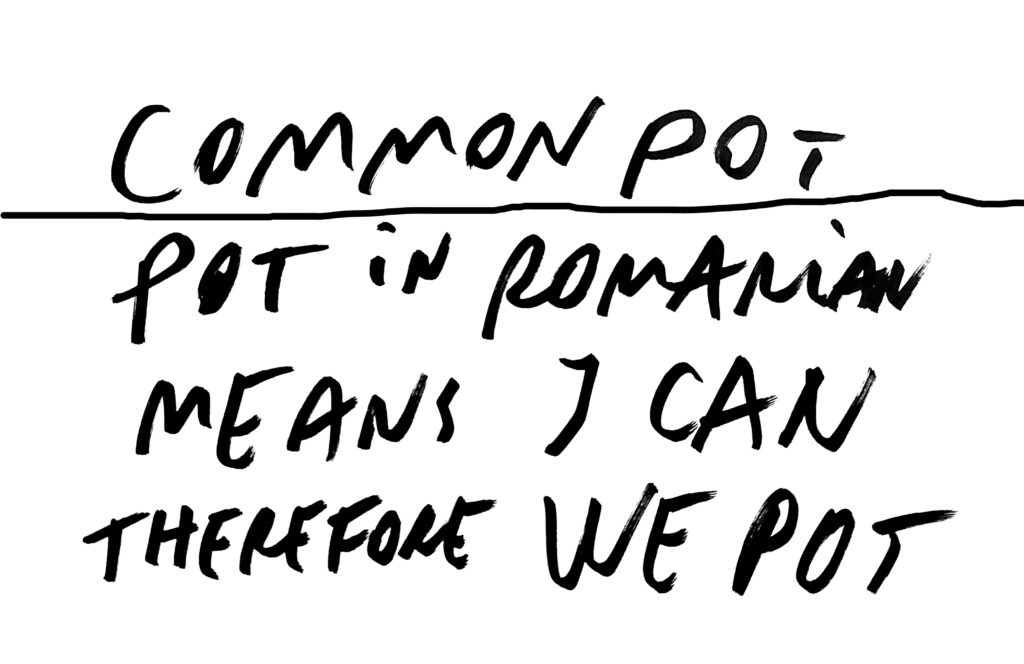 COMMON POT
POT iN ROMANiAN
MEANS I CAN
THEREFORE WE POT